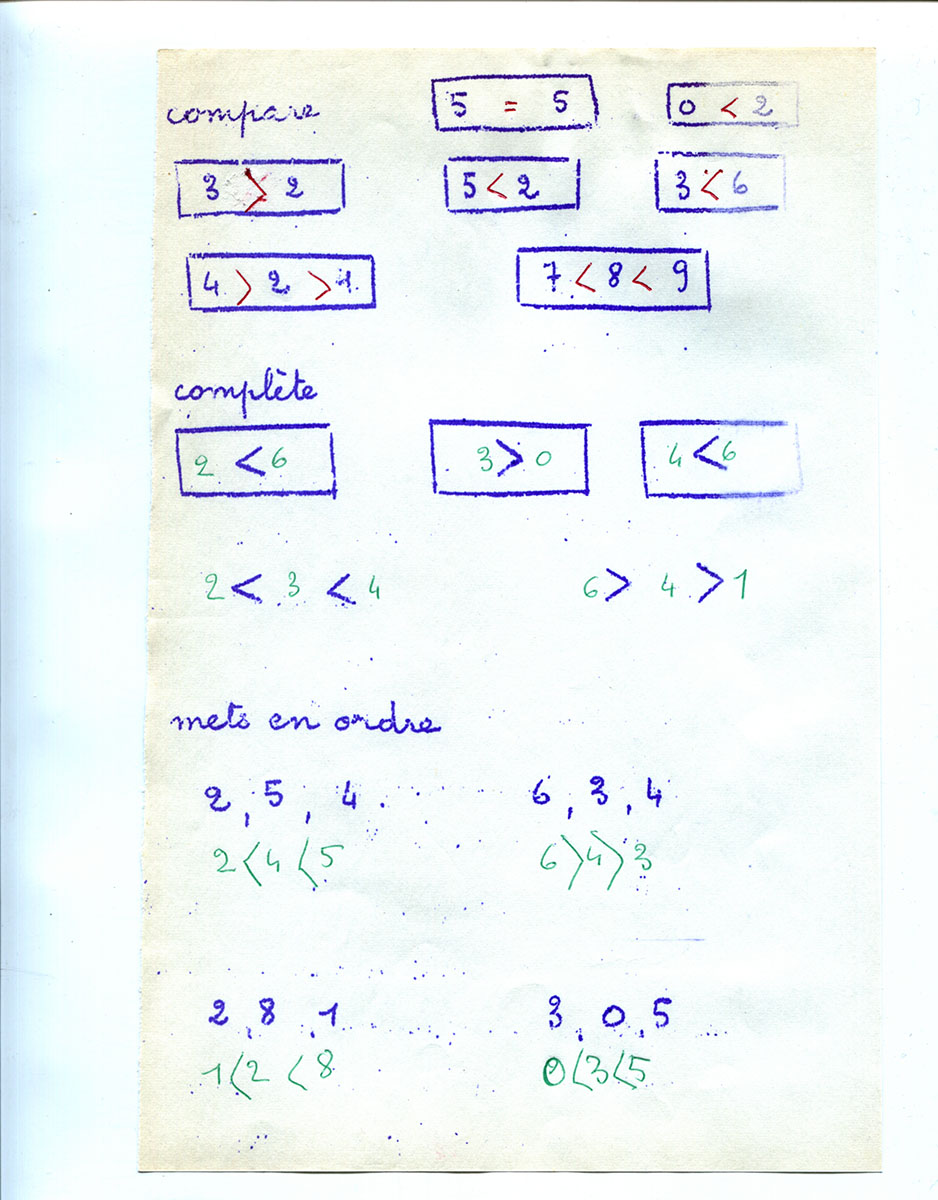 compare 5 = 5 0 < 2
3 > 2 5 < 2 3 < 6
4 > 2 > 1 7 < 8 < 9
complète
2 < 6 3 > 0 4 < 6
2 < 3 < 4 6 > 4 > 1
mets en ordre
2 , 5 , 4 . 6 , 3 , 4
2 < 4 < 5 6 > 4 > 3
2 , 8 , 1 3 , 0 , 5
1 < 2 < 8 0 < 3 < 5